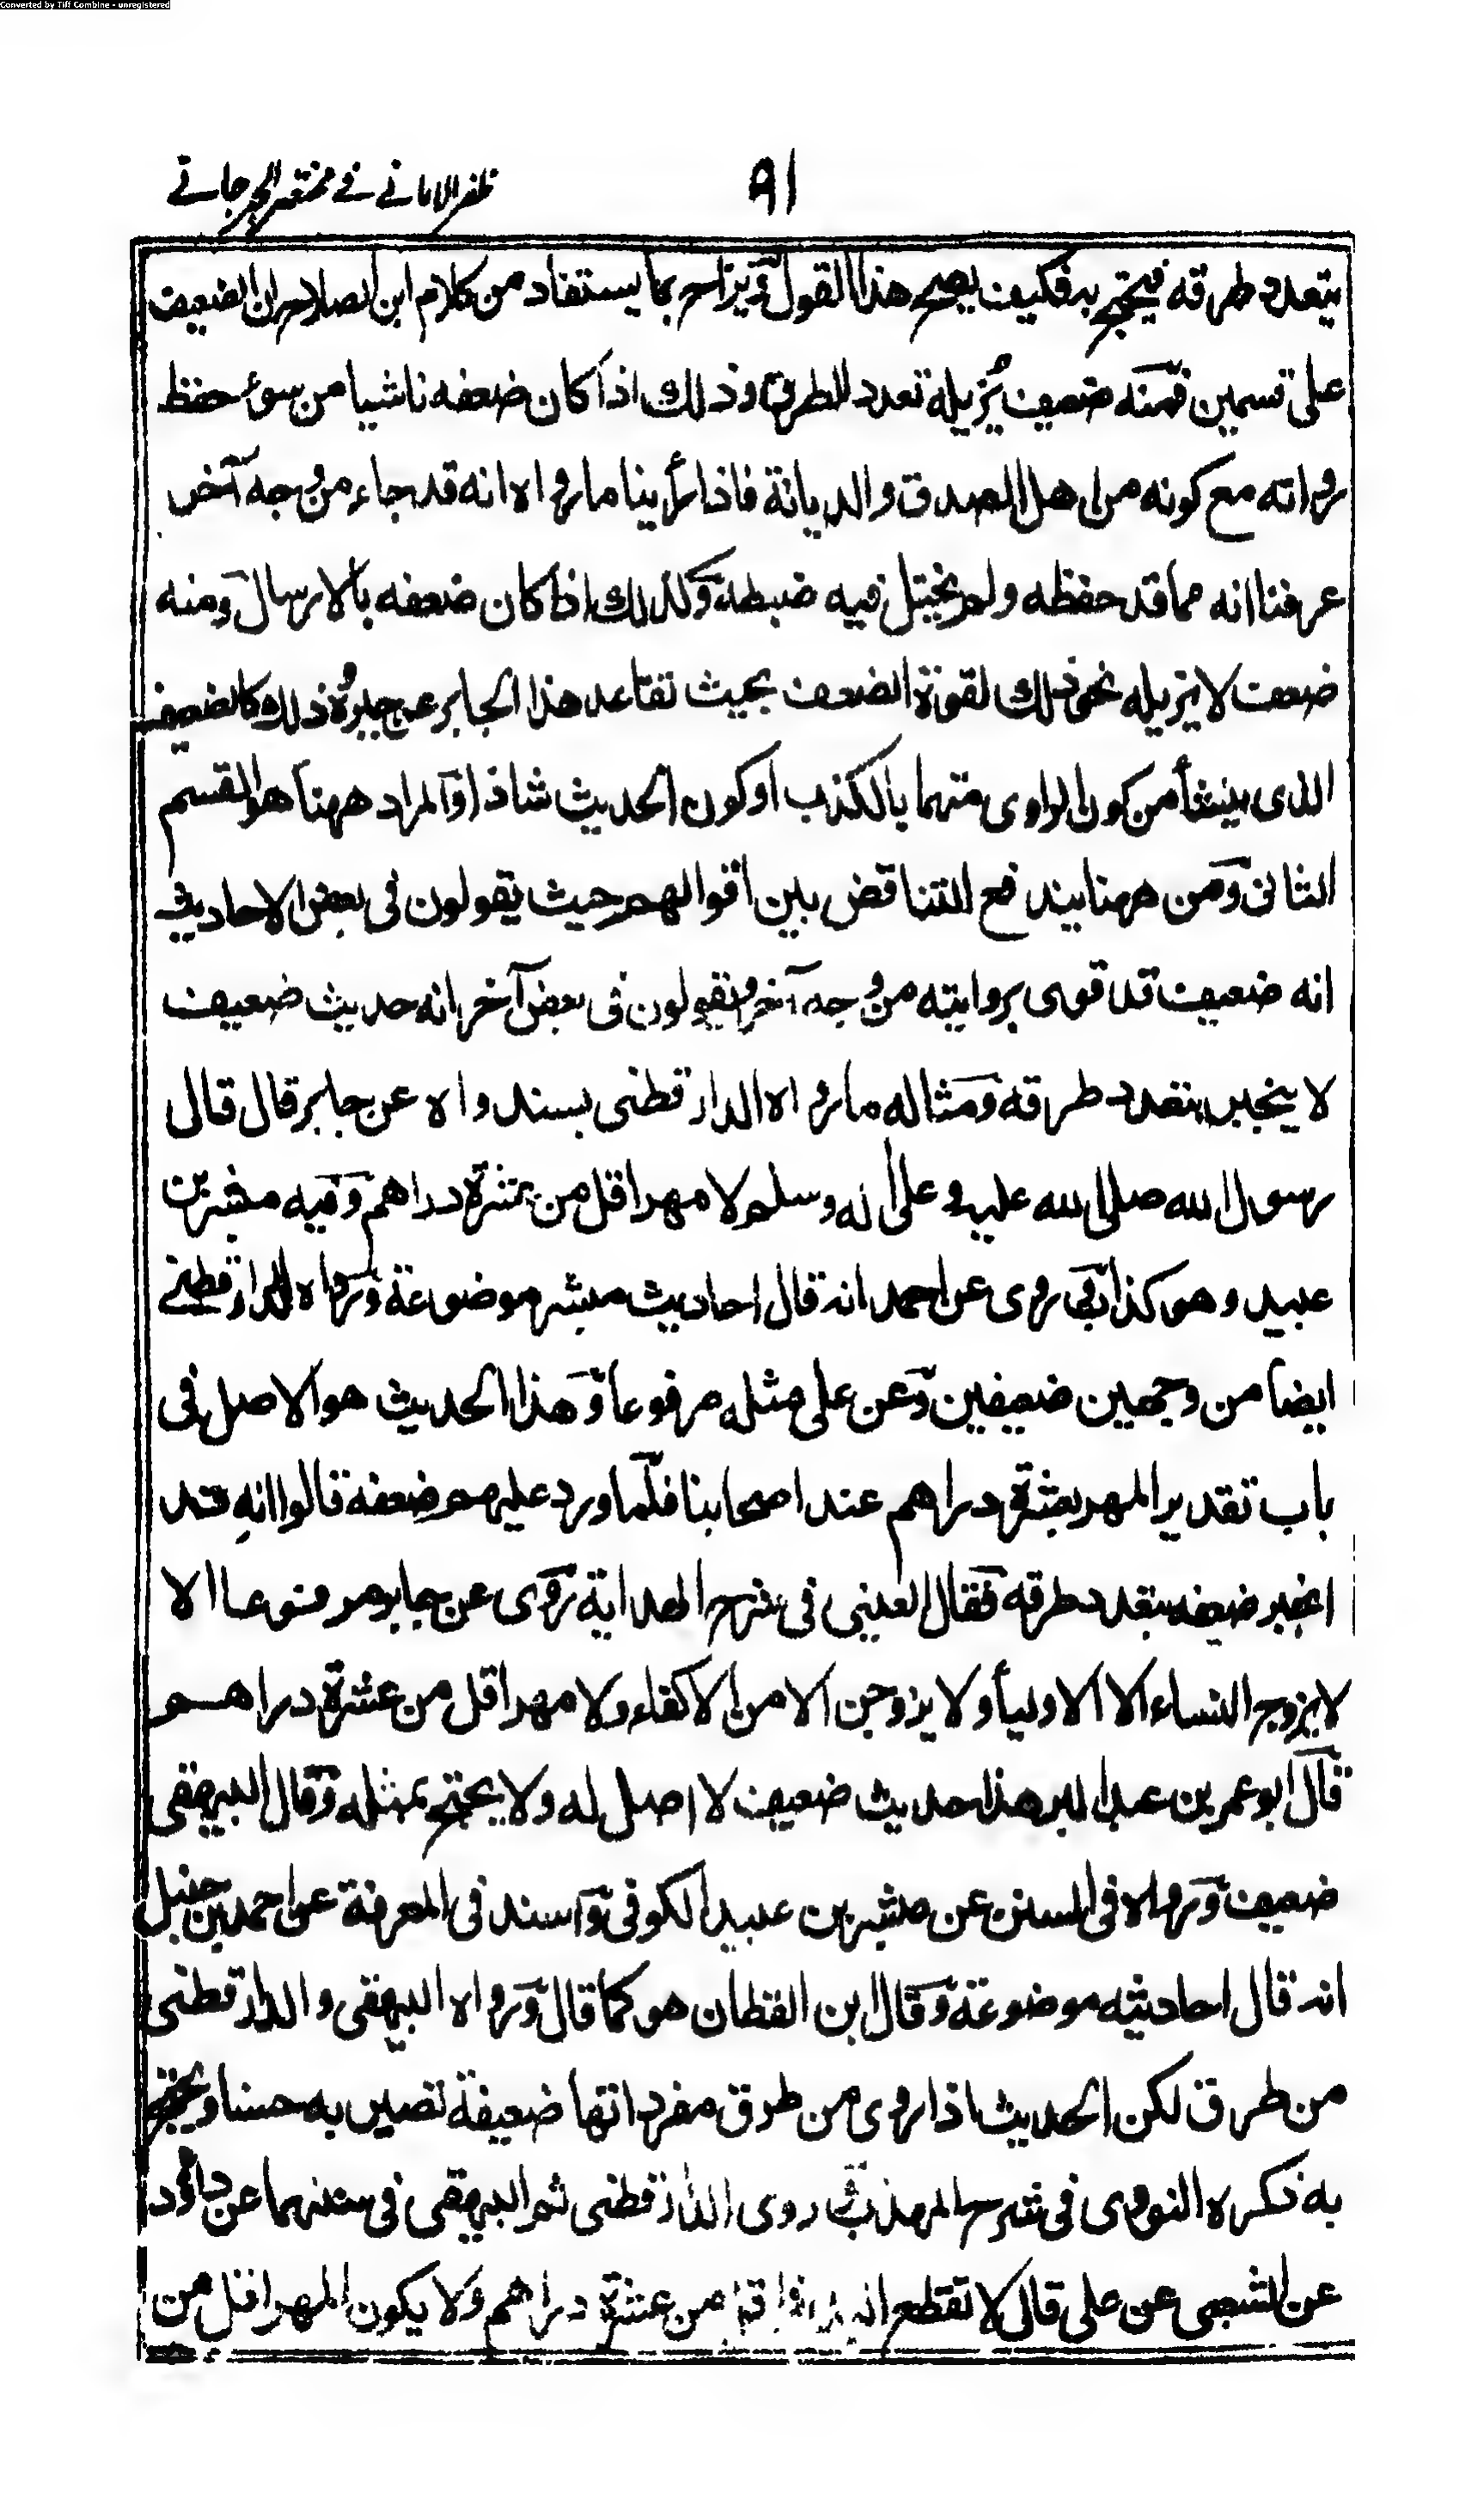 Converted by Tiff Combine - unregistered
ظفر الامانے فے مختصر الجرجانے
٩١
يتعدد طرقه فيحتج به فكيف يصح هذا القول ويزاح بما يستفاد من كلام ابن الصلاح ان الضعيف
على قسمين فمنه ضعيف يُزيله تعدد الطرق وذلك اذا كان ضعفه ناشيا من سوء حفظ
رواته مع كونه من اهل الصدق والديانة فاذا رأينا ما رواه انه قد جاء من وجه آخر
عرفنا انه مما قد حفظه ولم يختل فيه ضبطه وكذلك اذا كان ضعفه بالارسال ومنه
ضعف لا يزيله نحو ذلك لقوة الضعف بحيث تقاعد هذا الجابر عن جبره ذلك كالضعيف
الذى ينشأ من كون الراوى متهما بالكذب او كون الحديث شاذا والمراد ههنا هو القسم
الثانى ومن ههنا يندفع التناقض بين اقوالهم حيث يقولون فى بعض الاحاديث
انه ضعيف قد قوى بروايته من وجه آخر ويقولون فى بعض آخر انه حديث ضعيف
لا ينجبر بتعدد طرقه ومثاله ما رواه الدارقطنى بسند واه عن جابر قال قال
رسول الله صلى الله عليه وعلى اله وسلم لا مهر اقل من عشرة دراهم وفيه مبشر بن
عبيد وهو كذاب روى عن احمد انه قال احاديث مبشر موضوعة ورواه الدارقطنے
ايضا من وجهين ضعيفين وعن على مثله مرفوعا وهذا الحديث هو الاصل فى
باب تقدير المهر بعشرة دراهم عند اصحابنا فلما ورد عليهم ضعفه قالوا انه قد
انجبر ضعفه بتعدد طرقه فقال العينى فى شرح الهداية روى عن جابر مرفوعا الا
لا يزوج النساء الا الاوليأ ولا يزوجن الا من الاكفاء ولا مهر اقل من عشرة دراهم
قال ابو عمر بن عبد البر هذا حديث ضعيف لا اصل له ولا يحتج بمثله وقال البيهقى
ضعيف ورواه فى السنن عن مبشر بن عبيد الكوفى واسند فى المعرفة عن احمد بن حنبل
انه قال احاديثه موضوعة وقال ابن القطان هو كما قال ورواه البيهقى والدارقطنى
من طرق لكن الحديث اذا روى من طرق مفرداتها ضعيفة تصير به حسنا ويحتج
به ذكره النووى فى شرح المهذب روى الدارقطنى ثم البيهقى فى سننهما عن داؤد
عن الشعبى عن على قال لا تقطع من عشرة دراهم ولا يكون المهر اقل من